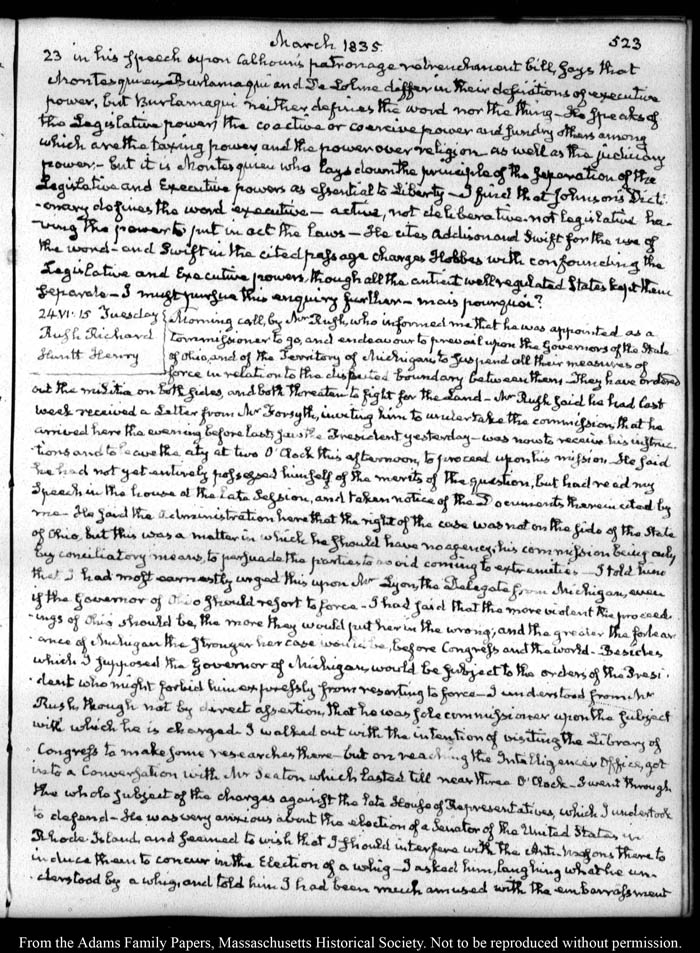 March 1835.
523
23 in his speech upon Calhoun's patronage retrenchment bill, says that
Montesquieu, Burlamaqui and De Lolme differ in their definitions of executive
power, but Burlamaqui neither defines the word nor the thing — He speaks of
the Legislative power, the coactive or coercive power and sundry others among
which are the taxing power and the power over religion as well as the judiciary
power — but it is Montesquieu who lays down the principle of the separation of the
Legislative and Executive powers as essential to Liberty — I find that Johnson's Dicti
-onary defines the word executive — active, not deliberative — not legislative ha-
-ving the power to put in act the Laws — He cites Addison and Swift for the use of
the word — and Swift in the cited passage charges Hobbes with confounding the
Legislative and Executive powers, though all the antient well regulated States kept them
separate — I must pursue this enquiry further — mais pourquoi?
24 VI. 15 Tuesday
Rush Richard
Huntt Henry
Morning call, by Mr Rush, who informed me that he was appointed as a
Commissioner to go, and endeavour to prevail upon the Governors of the State
of Ohio, and of the Territory of Michigan, to suspend all their measures of
force in relation to the disputed boundary between them — They have ordered
out the militia on both sides, and both threaten to fight for the Land — Mr Rush said he had last
week received a Letter from Mr Forsyth, inviting him to undertake the commission, that he
arrived here the evening before last, saw the President yesterday — was now to receive his instruc-
-tions and to leave the city at two O'Clock this afternoon, to proceed upon his mission — He said
he had not yet entirely possessed himself of the merits of the question, but had read my
Speech in the house at the late Session, and taken notice of the Documents therein cited by
me — He said the Administration here that the right of the case was not on the side of the State
of Ohio, but this was a matter in which he should have no agency, his commission being only
by conciliatory means, to persuade the parties to avoid coming to extremities — I told him
that I had most earnestly urged this upon Mr Lyon, the Delegate from Michigan, even
if the Governor of Ohio should resort to force — I had said that the more violent the proceed-
-ings of Ohio should be, the more they would put her in the wrong, and the greater the forbear-
-ance of Michigan the stronger her case would be, before Congress and the world — Besides
which I supposed the Governor of Michigan, would be subject to the orders of the Presi-
-dent who might forbid him expressly from resorting to force — I understood from Mr
Rush, though not by direct assertion, that he was sole commissioner upon the subject
with which he is charged. I walked out with the intention of visiting the Library of
Congress to make some researches there — but on reaching the Intelligencer Office, got
into a Conversation with Mr Seaton which lasted till near three O'Clock — I went through
the whole subject of the charges against the late House of Representatives, which I undertook
to defend — He was very anxious about the election of a Senator of the United States in
Rhode Island, and seemed to wish that I should interfere with the Anti-Masons there to
induce them to concur in the Election of a whig — I asked him, laughing what he un-
-derstood by a whig, and told him I had been much amused with the embarrassment
From the Adams Family Papers, Massachusetts Historical Society. Not to be reproduced without permission.